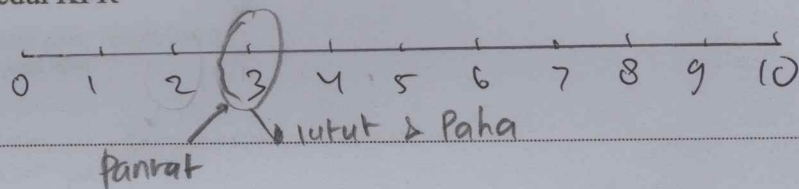 0 1 2 3 4 5 6 7 8 9 10
lutut & Paha
Pantat